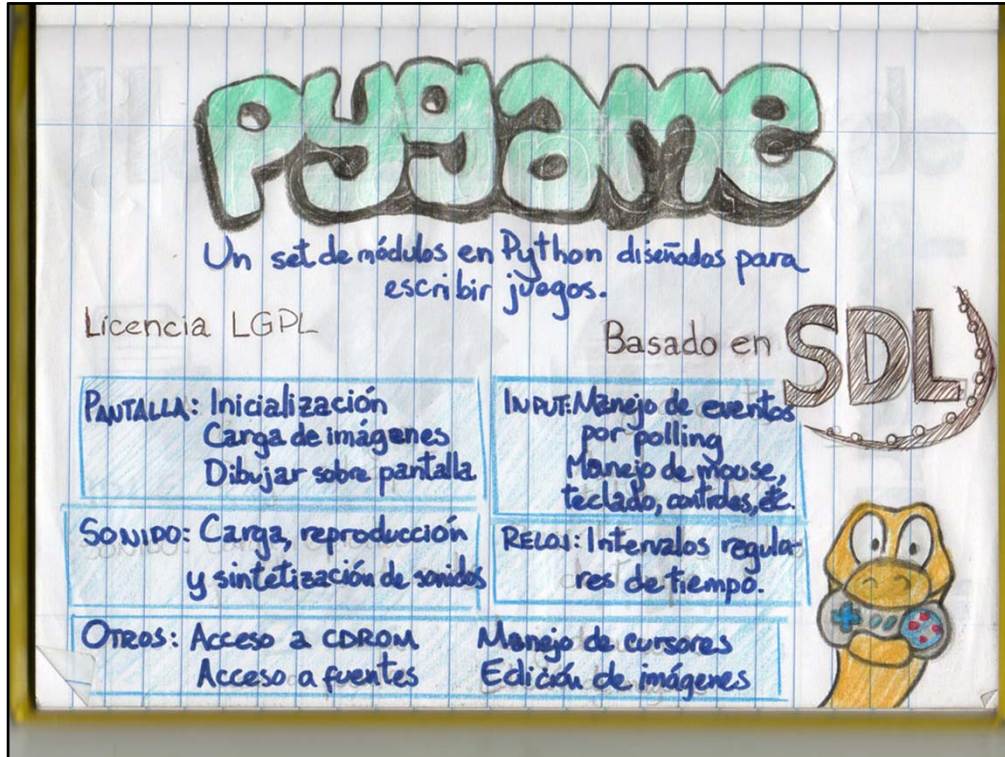 Pygame
Un set de módulos en Python diseñados para
escribir juegos.
Licencia LGPL
Basado en SDL
PANTALLA: Inicialización
Carga de imágenes
Dibujar sobre pantalla
INPUT: Manejo de eventos
por polling
Manejo de mouse,
teclado, controles, etc.
SONIDO: Carga, reproducción
y sintetización de sonidos
RELOJ: Intervalos regula-
res de tiempo.
OTROS: Acceso a CDROM
Acceso a fuentes
Manejo de cursores
Edición de imágenes